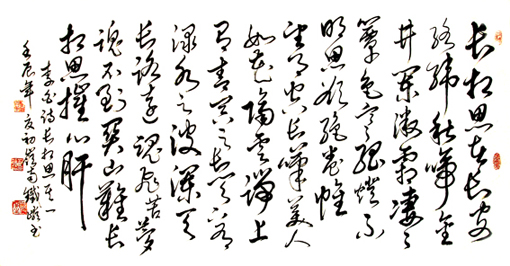 长相思在长安
络纬秋啼金
井阑微霜凄凄
簟色寒孤灯不
明思欲绝卷帷
望月空长叹美人
如花隔云端上
有青冥之长天下有
渌水之波澜天
长路远魂飞苦梦
魂不到关山难长
相思摧心肝
李白诗长相思其一
壬辰年夏初书